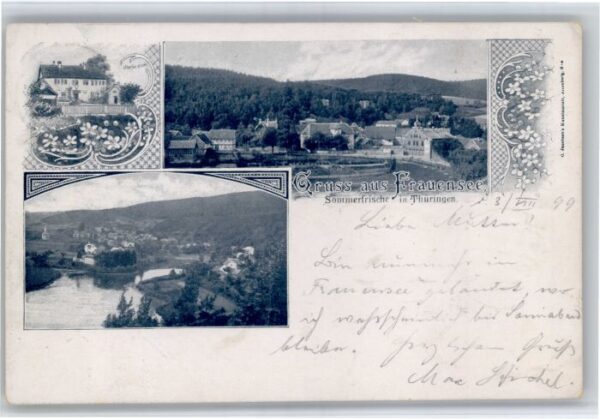 Gruss aus Frauensee
Sommerfrische in Thüringen.
3/VIII 99
Liebe Mutter!
Bin nunmehr in
Frauensee gelandet, wo
ich wahrscheinl. bis Sonnabend
bleibe. Herzlichen Gruß
Max